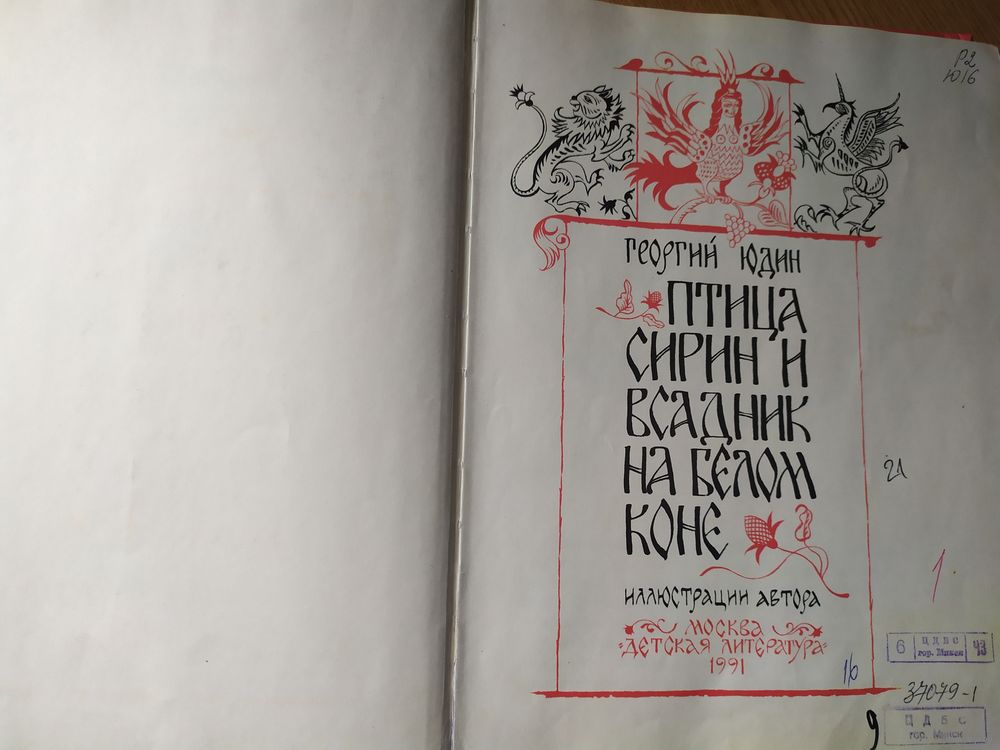 Р2
Ю16
ГЕОРГИЙ ЮДИН
ПТИЦА
СИРИН И
ВСАДНИК
НА БЕЛОМ
КОНЕ
21
ИЛЛЮСТРАЦИИ АВТОРА
МОСКВА
ДЕТСКАЯ ЛИТЕРАТУРА
1991
1
16
6 ЦДБС гор. Минск 93
37079-1
9
ЦДБС
гор. Минск